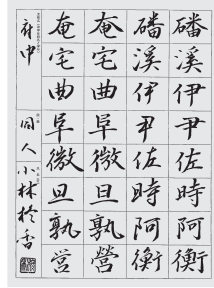 磻溪伊尹佐時阿衡
磻溪伊尹佐時阿衡
奄宅曲阜微旦孰營
奄宅曲阜微旦孰営
府中
同人
小林
香